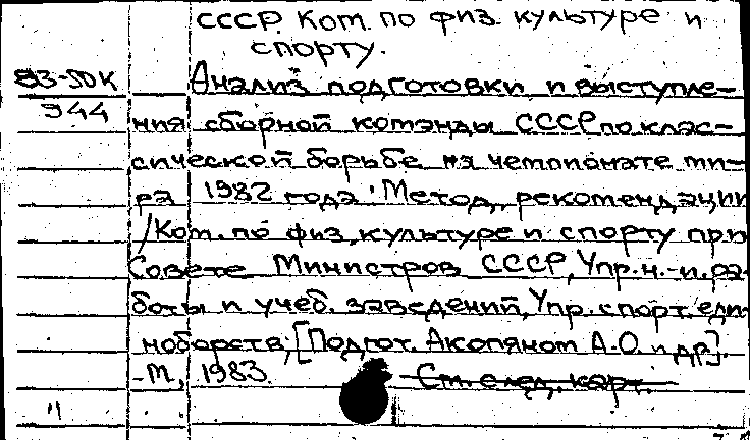 СССР. Ком. по физ. культуре и
спорту.
83-50К
944
Анализ подготовки и выступле-
ния сборной команды СССР по клас-
сической борьбе на чемпионате ми-
ра 1982 года: Метод. рекомендации
/Ком. по физ. культуре и спорту при
Совете Министров СССР, Упр. н.-и. ра-
боты и учеб. заведений, Упр. спорт. еди-
ноборств; [Подгот. Акопяном А.О. и др.].
-М., 1983.
См. след. карт.